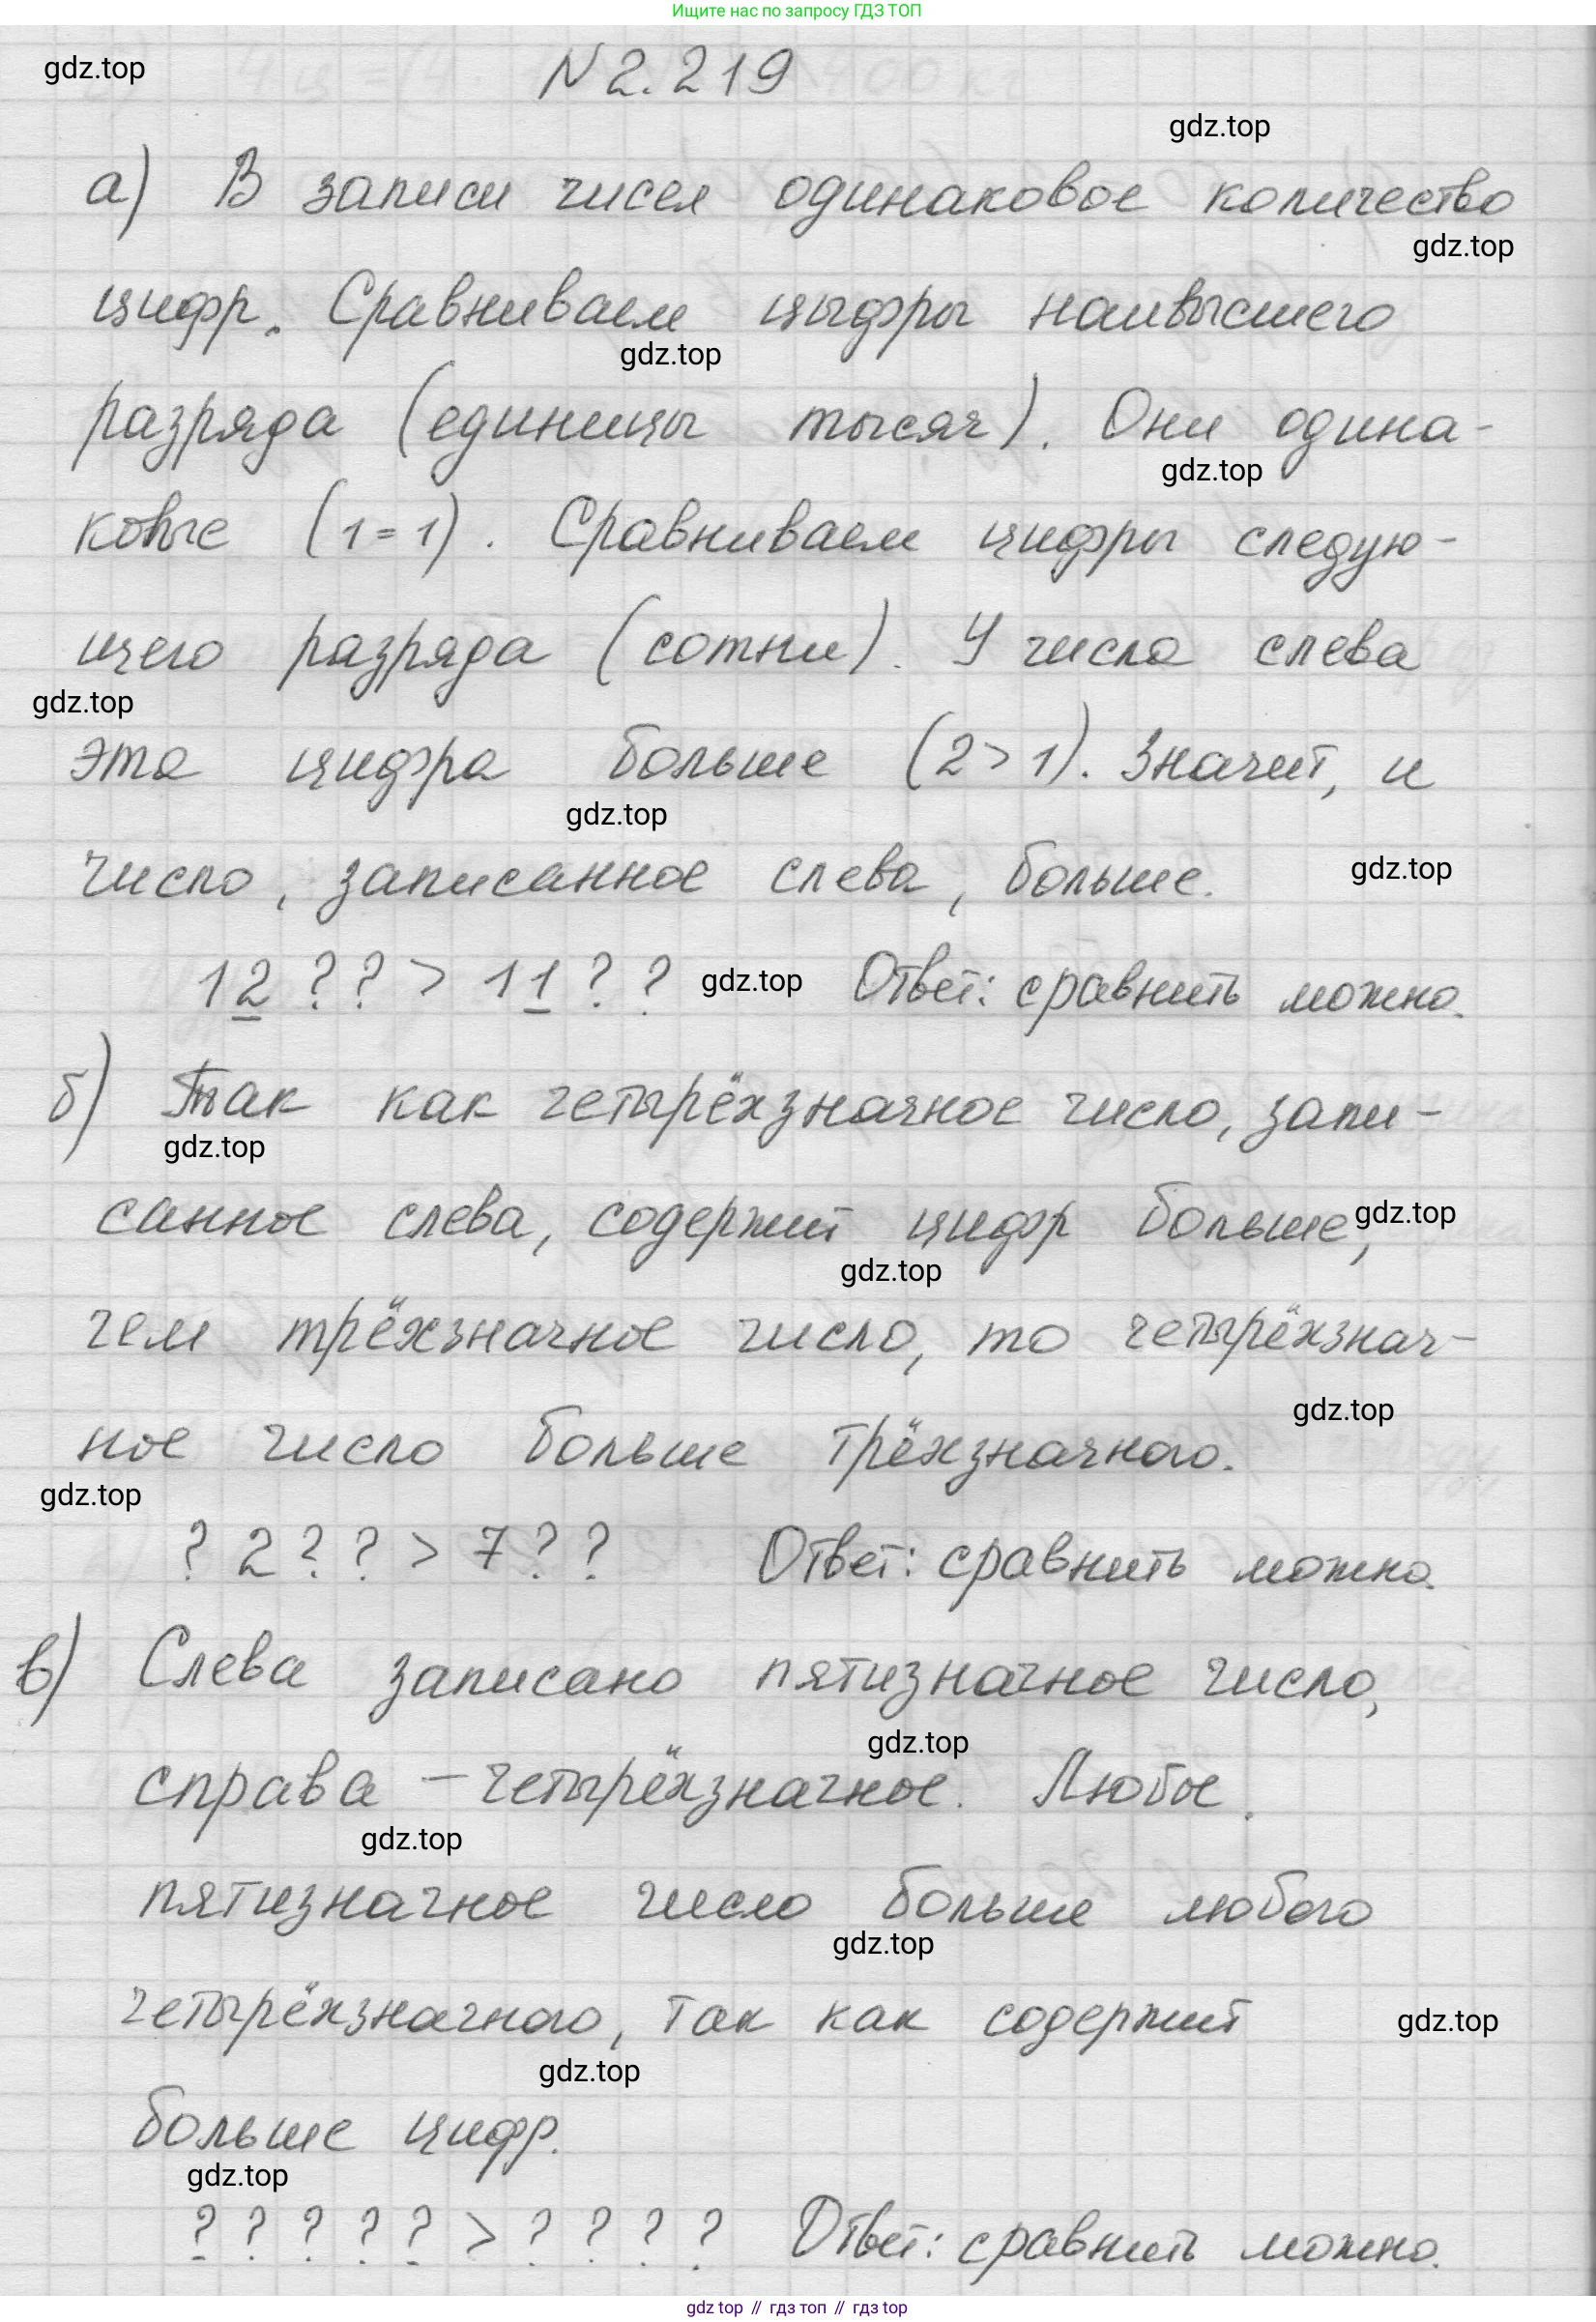 Ищите нас по запросу ГДЗ ТОП
gdz.top
N 2.219
gdz.top
а) В записи чисел одинаковое количество
gdz.top
цифр. Сравниваем цыфры наивысшего
gdz.top
разряда (единицы тысяч). Они одина-
gdz.top
ковые (1=1). Сравниваем цифры следую-
щего разряда (сотни). У числа слева
gdz.top
эта цифра больше (2>1). Значит, и
gdz.top
число, записанное слева, больше.
gdz.top
12??>11?? gdz.top Ответ: сравнить можно.
б) Так как четырёхзначное число, запи-
gdz.top
санное слева, содержит цифр больше,
gdz.top
gdz.top
чем трёхзначное число, то четырёхзнач-
gdz.top
ное число больше трёхзначного.
gdz.top
?2??>7?? Ответ: сравнить можно.
в) Слева записано пятизначное число,
gdz.top
справа – четырёхзначное. Любое
gdz.top
пятизначное число больше любого
gdz.top
четырёхзначного, так как содержит
gdz.top
gdz.top
больше цифр.
gdz.top
?????>???? Ответ: сравнить можно.
gdz top // гдз топ // гдз top